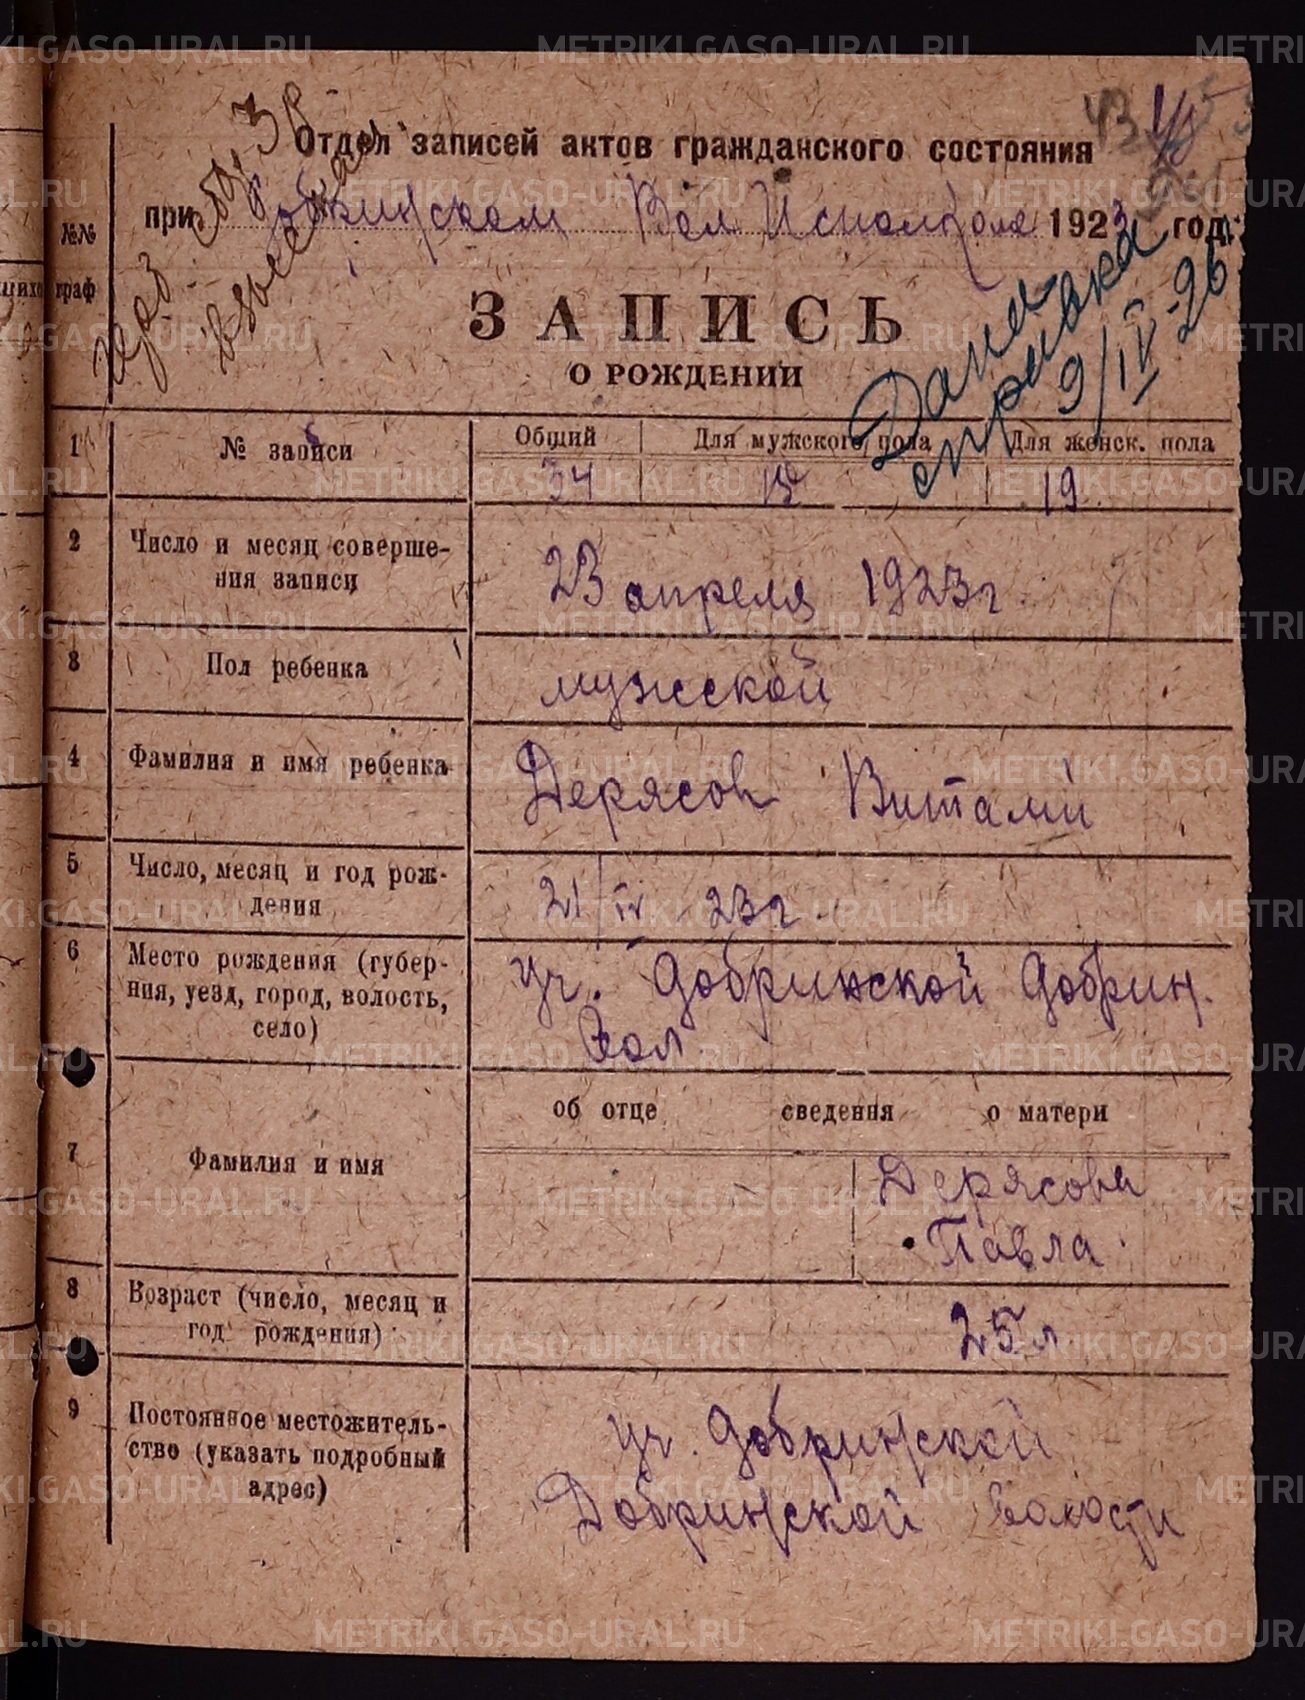 METRIKI.GASO-URAL.RU
Отдел записей актов гражданского состояния
при Вол Исполкоме 1923 год
№№ граф
ЗАПИСЬ
О РОЖДЕНИИ
Дана
справка
9/IV-26
1 № записи Общий Для мужского пола Для женск. пола
34 19
2 Число и месяц соверше-
ния записи
23 апреля 1923 г.
3 Пол ребенка мужской
4 Фамилия и имя ребенка Дерясов Виталий
5 Число, месяц и год рож-
дения
21/IV 23 г.
6 Место рождения (губер-
ния, уезд, город, волость,
село)
уч. Добринской Добрин.
Вол.
об отце сведения о матери
7 Фамилия и имя
Дерясова
Павла
8 Возраст (число, месяц и
год рождения)
25 л
9 Постоянное местожитель-
ство (указать подробный
адрес)
уч. Добринской
Добринской волости